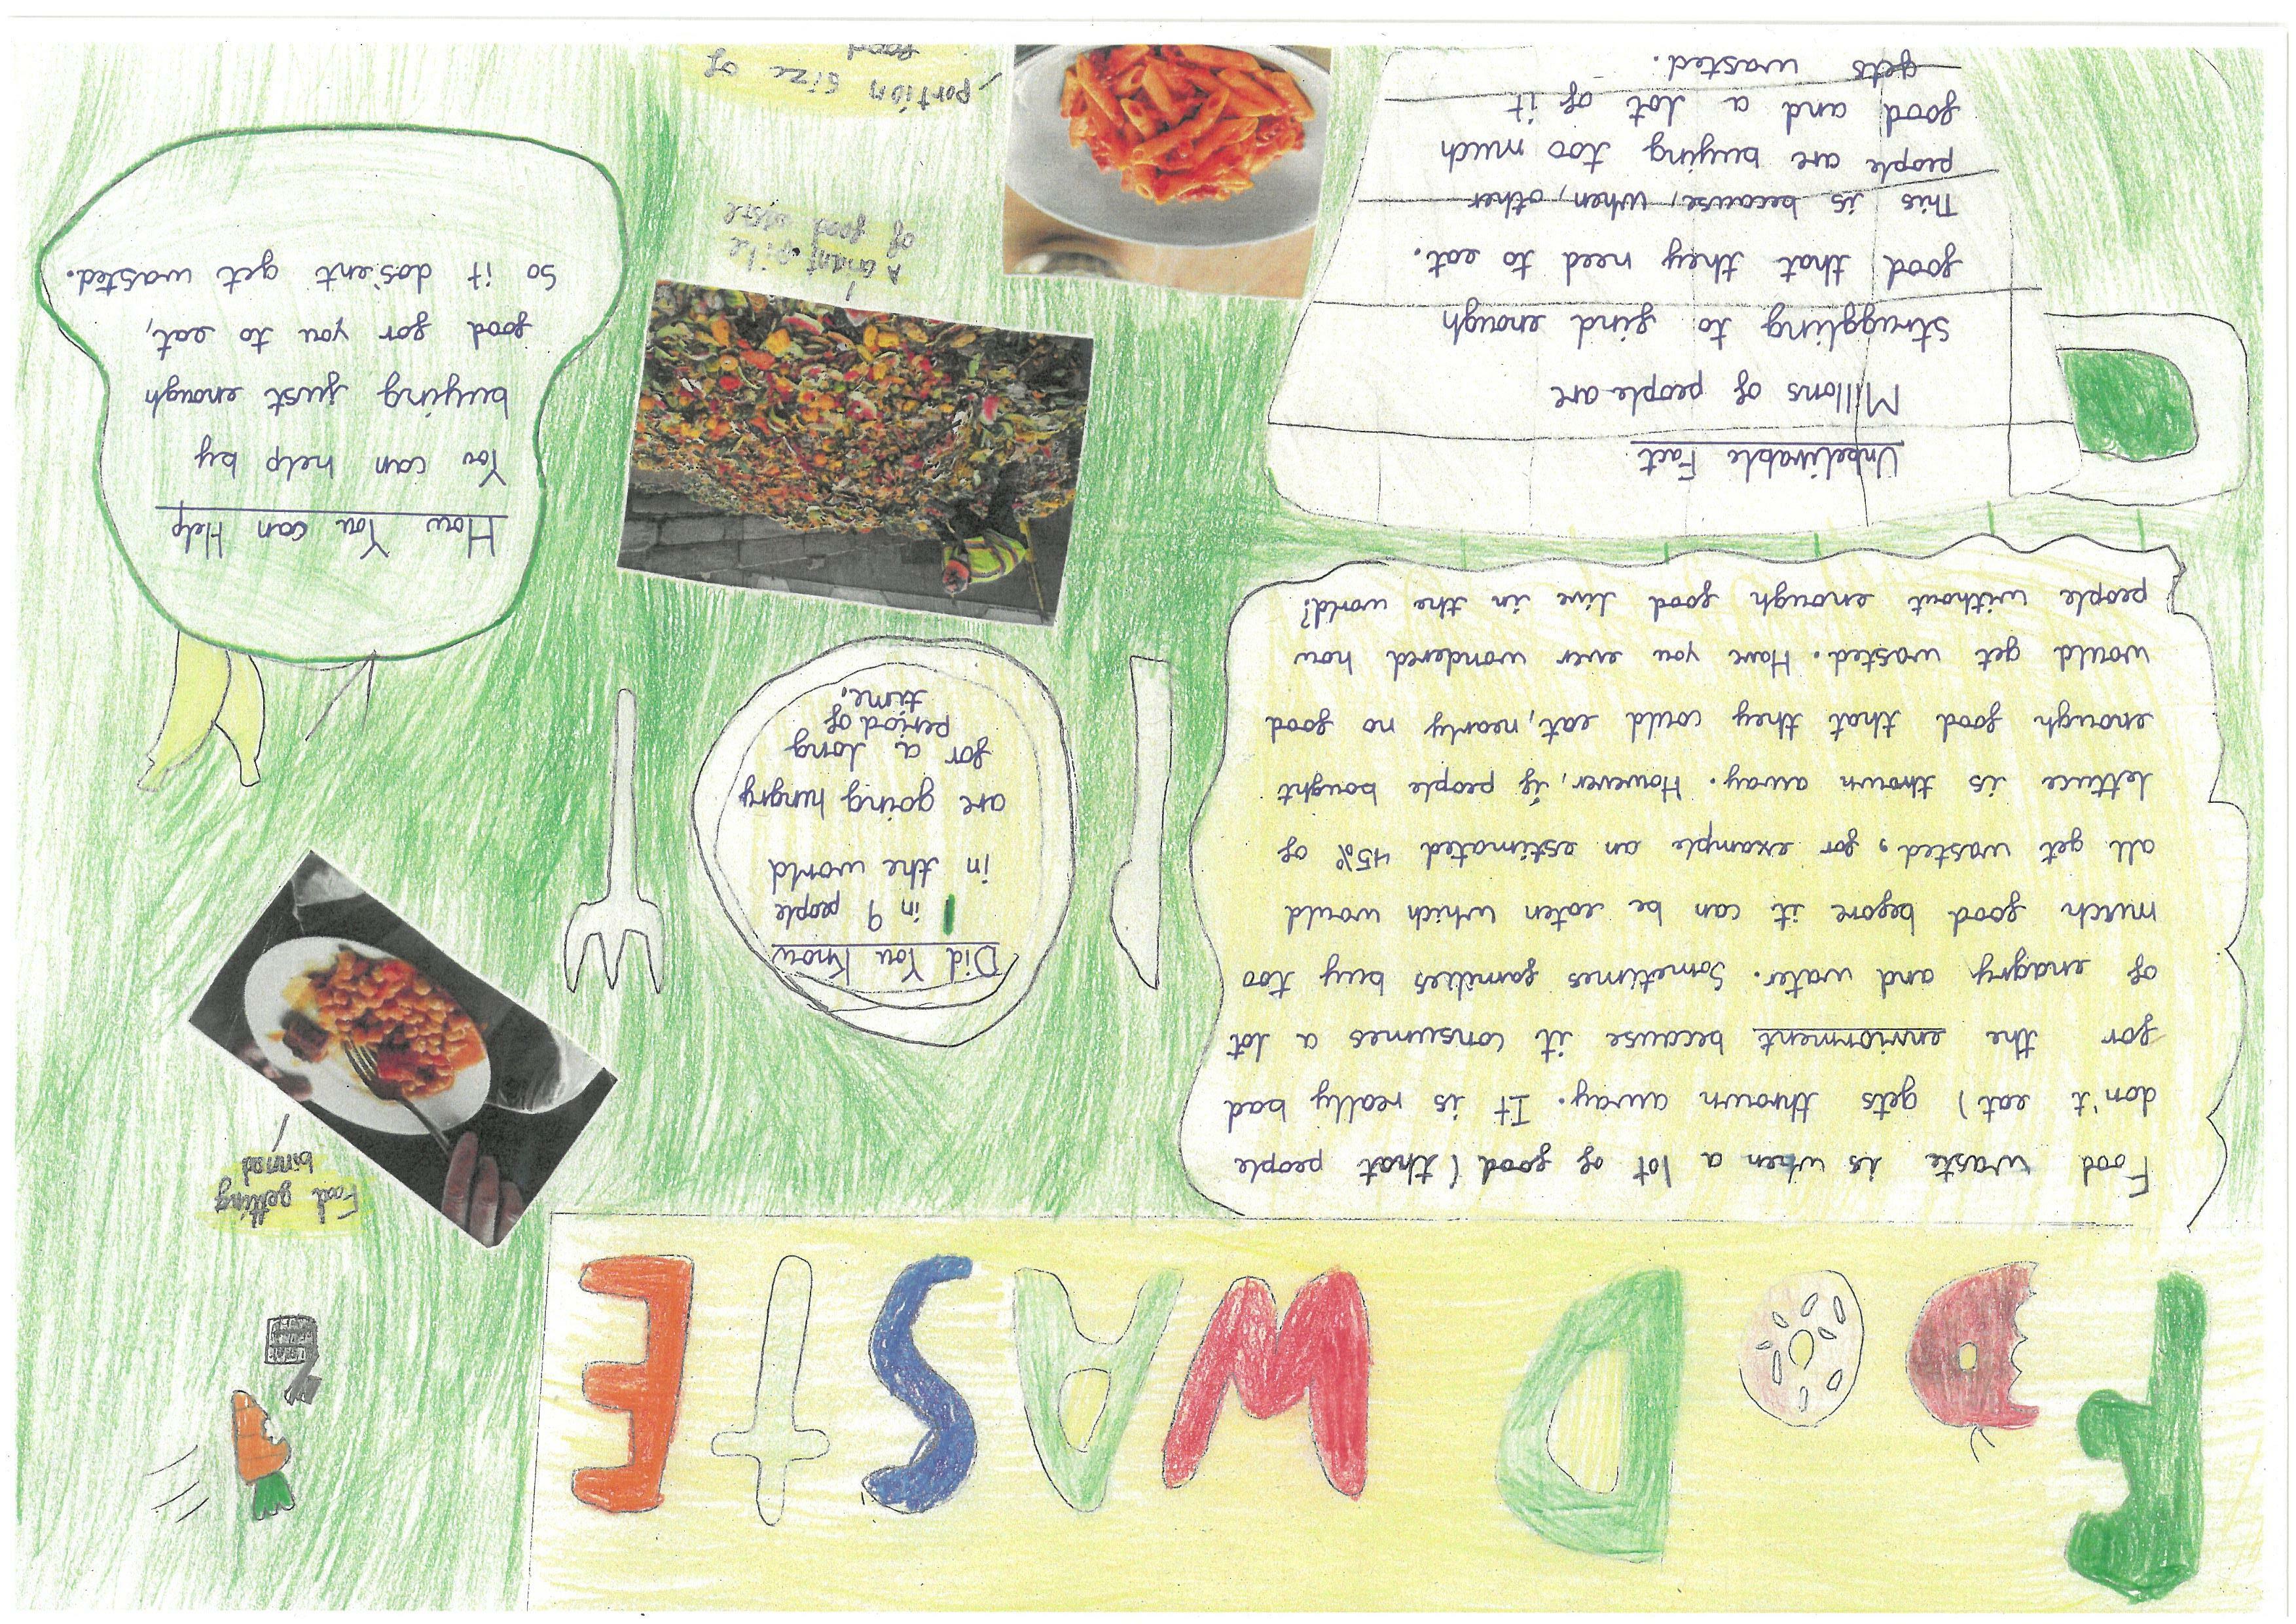 FOOD WASTE
Food waste is when a lot of food (that people
don't eat) gets thrown away. It is really bad
for the enviorment because it consumes a lot
of enagry and water. Sometimes families buy too
much food before it can be eaten which would
all get wasted, for example an estimated 45% of
lettuce is thrown away. However, if people bought
enough food that they could eat, nearly no food
would get wasted. Have you ever wondered how
people without enough food live in the world?
Food getting
binned
Did You Know
1 in 9 people
in the world
are going hungry
for a long
period of
time.
How You can Help
You can help by
buying just enough
food for you to eat,
so it dos'ent get wasted.
Unbelivable Fact
Millons of people are
struggling to find enough
food that they need to eat.
This is because, when, other
people are buying too much
food and a lot of it
gets wasted.
A giant pile
of food waste
portion size of
food